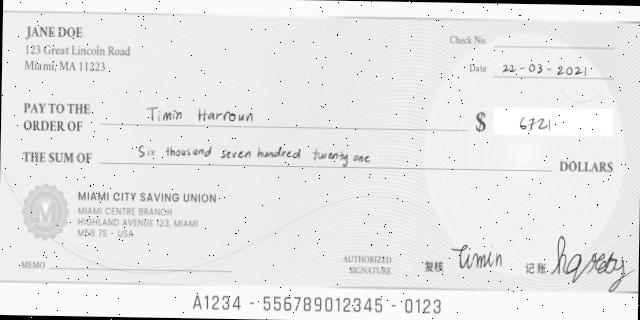 JANE DOE
123 Great Lincoln Road
Miami, MA 11223
Check No.
Date 22-03-2021
PAY TO THE
ORDER OF Timin Harroun $ 6721
THE SUM OF Six thousand seven hundred twenty one DOLLARS
MIAMI CITY SAVING UNION
MIAMI CENTRE BRANCH
HIGHLAND AVENUE 123, MIAMI
M58 7S - USA
MEMO
AUTHORIZED
SIGNATURE
复核 Timin 记账
A1234 - 556789012345 - 0123